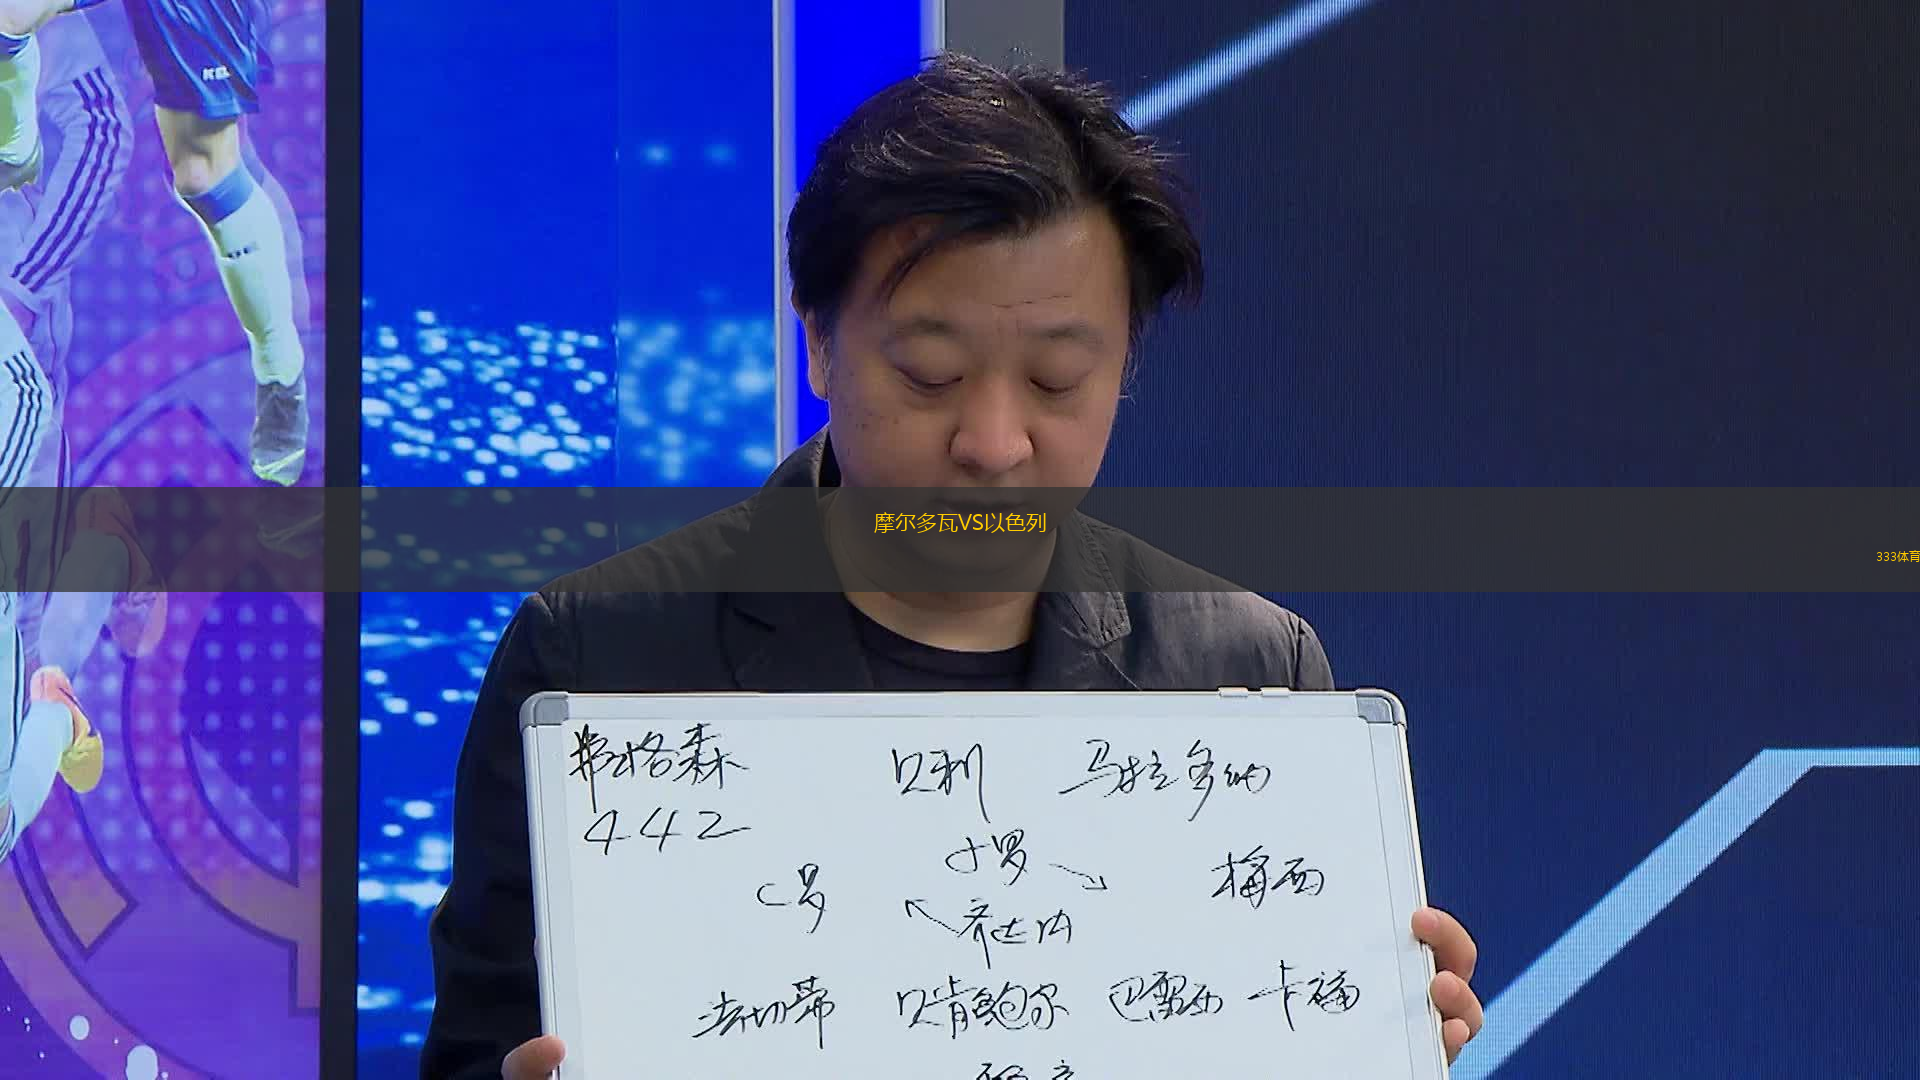 摩尔多瓦VS以色列
333体育
弗格森 贝利 马拉多纳
442
小罗
C罗 梅西
齐达内
法切蒂 贝肯鲍尔 巴雷西 卡福